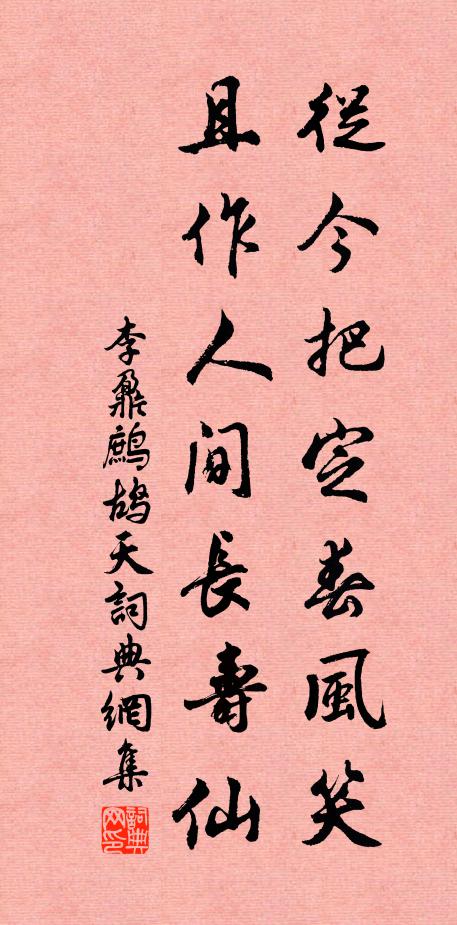 從今把定春風笑
且作人間長壽仙
李鼐鷓鴣天詞典網集
詞典网印